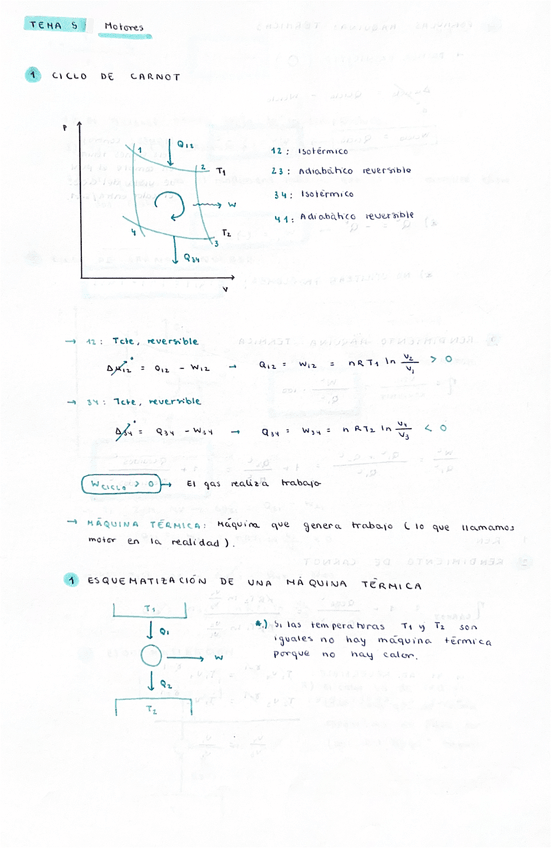 TEMA 5 Motores
1 CICLO DE CARNOT
P
Q12
1
2 T1
W
4 T2
3
Q34
V
12: Isotérmico
23: Adiabático reversible
34: Isotérmico
41: Adiabático reversible
→ 12: Tcte, reversible
Δu12 = Q12 - W12 → Q12 = W12 = nRT1 ln V2/V1 > 0
→ 34: Tcte, reversible
Q34 - W34 → Q34 = W34 = nRT2 ln V4/V3 < 0
Wciclo > 0 → El gas realiza trabajo
→ MÁQUINA TÉRMICA: Máquina que genera trabajo (lo que llamamos
motor en la realidad).
1 ESQUEMATIZACIÓN DE UNA MÁQUINA TÉRMICA
T1
Q1
W
Q2
T2
*) Si las temperaturas T1 y T2 son
iguales no hay máquina térmica
porque no hay calor.